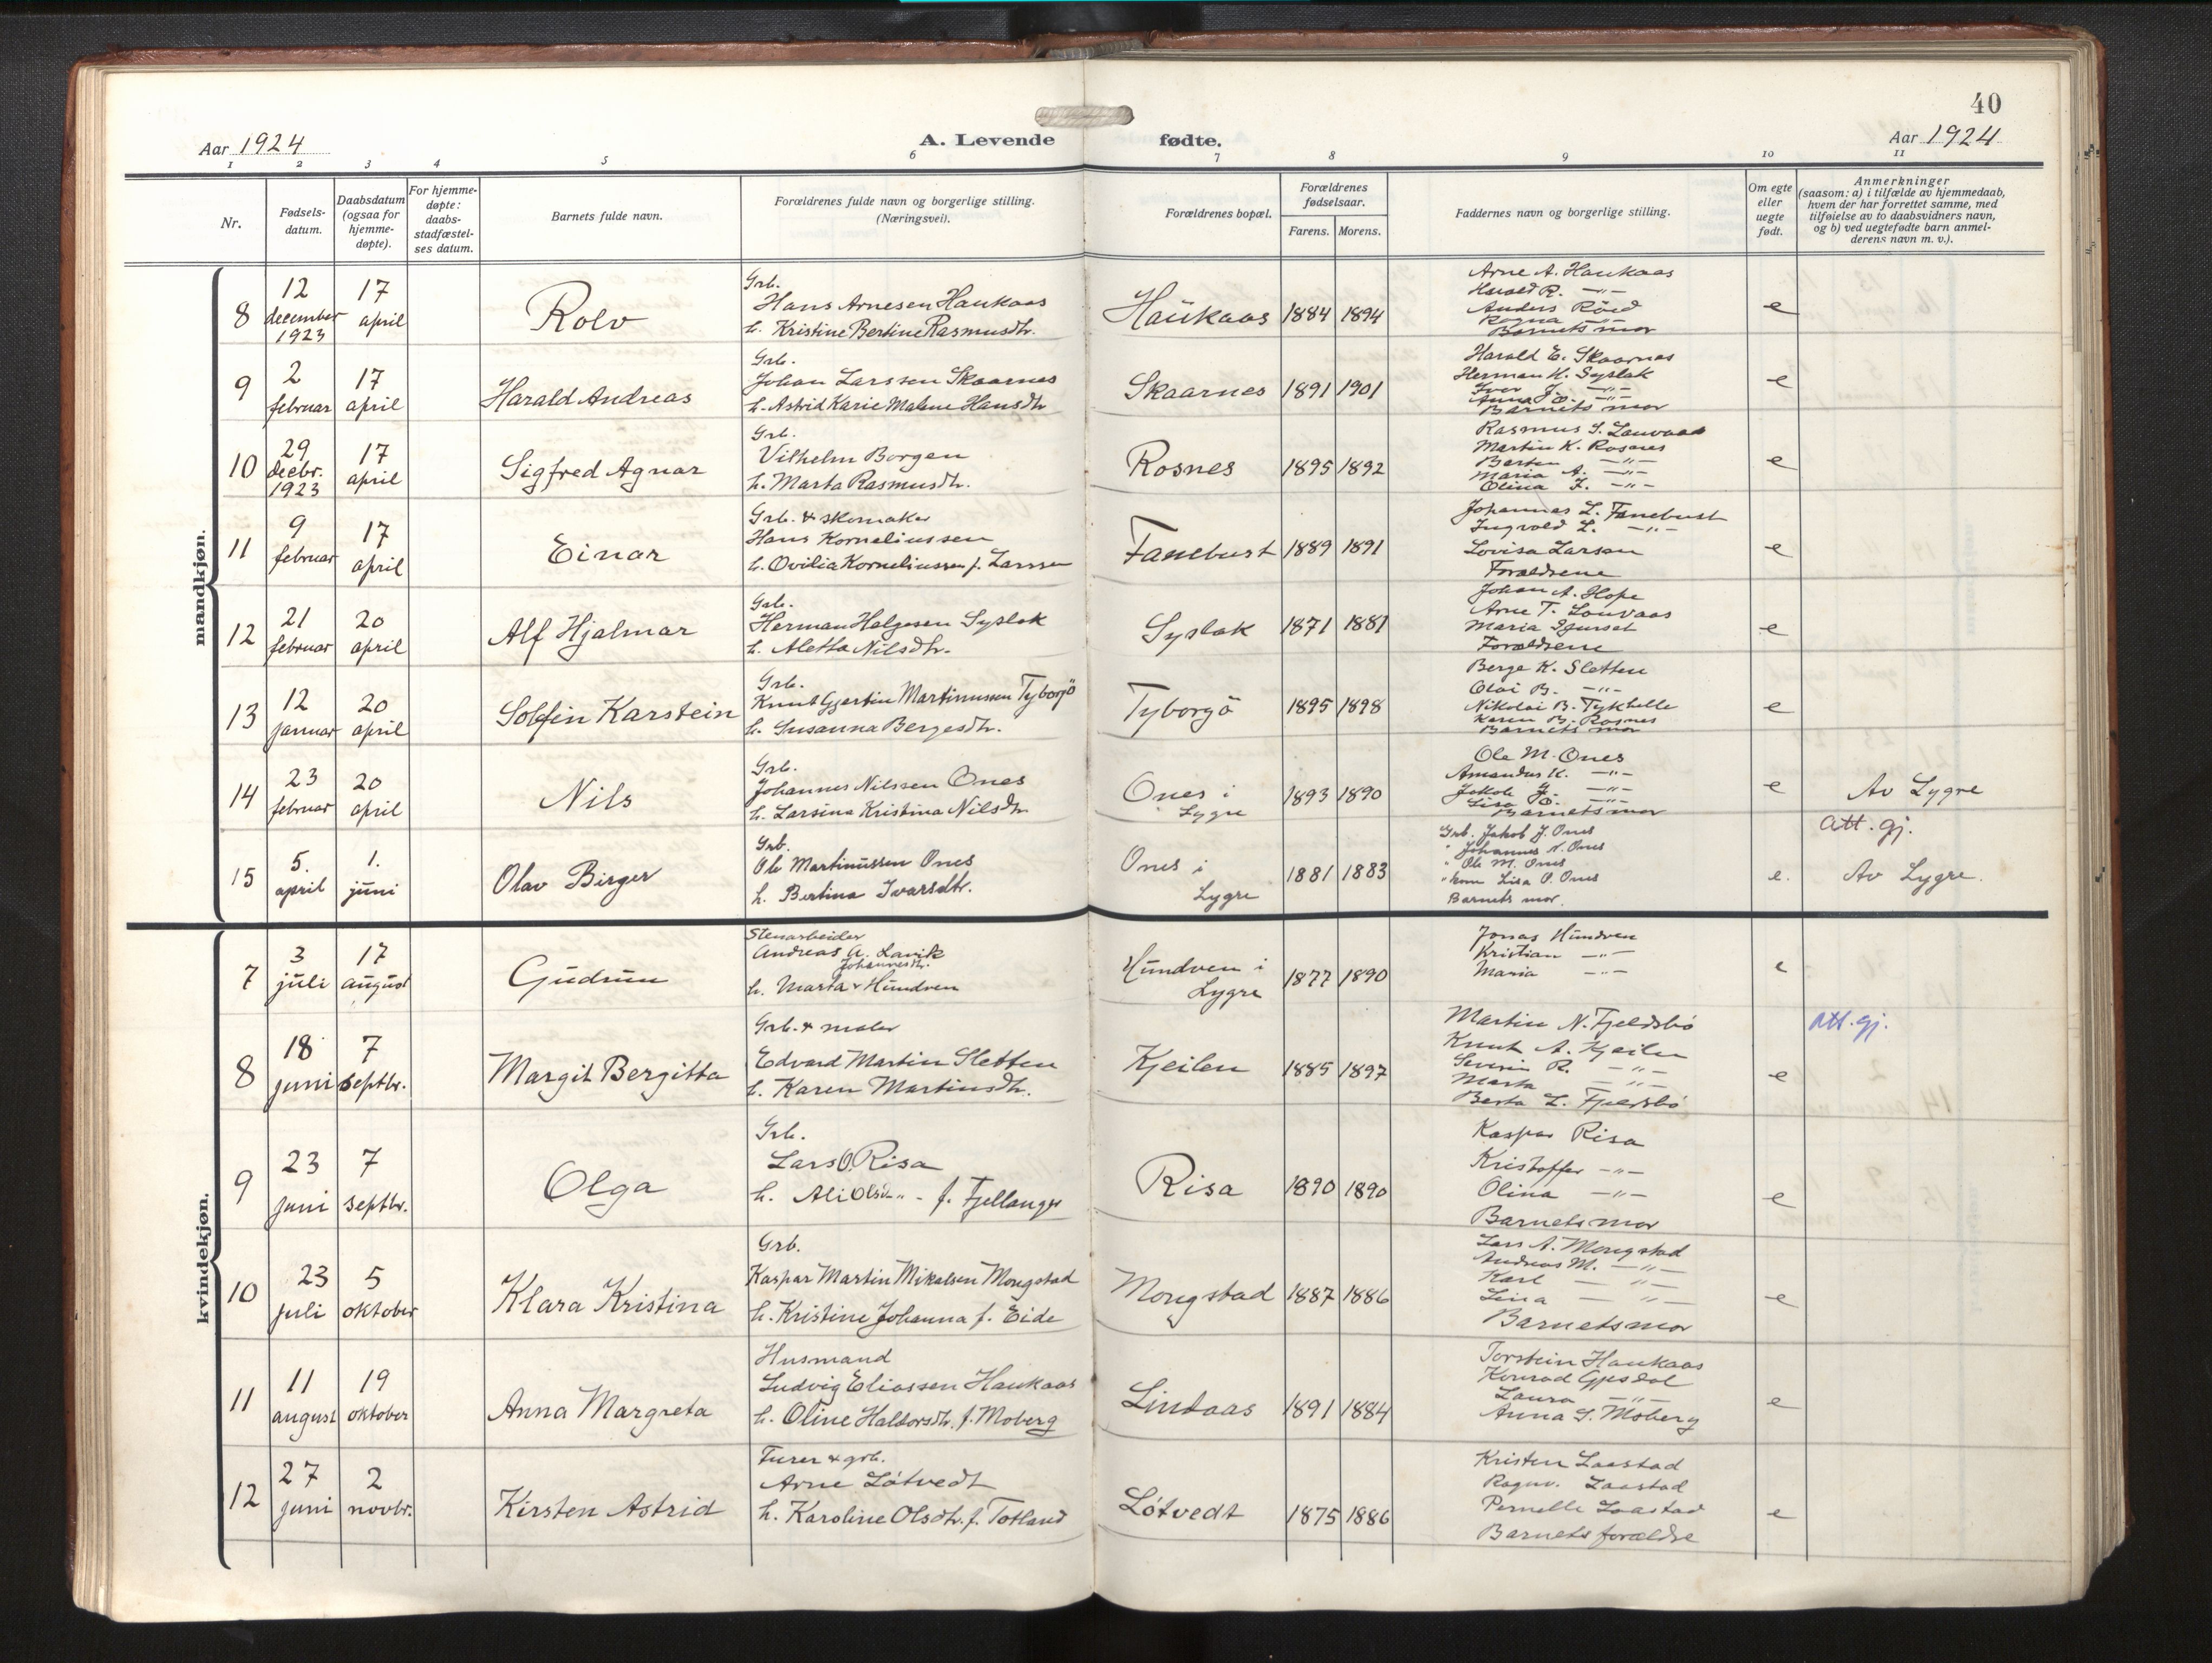 40
Aar 1924
A. Levende fødte.
Aar 1924
1 2 3 4 5 6 7 8 9 10 11
Nr.
Fødsels-
datum.
Daabsdatum
(ogsaa for
hjemme-
døpte).
For hjemme-
døpte:
daabs-
stadfæstel-
ses datum.
Barnets fulde navn.
Forældrenes fulde navn og borgerlige stilling.
(Næringsvei).
Forældrenes bopæl.
Forældrenes
fødselsaar.
Farens. Morens.
Faddernes navn og borgerlige stilling.
Om egte
eller
uegte
født.
Anmerkninger
(saasom: a) i tilfælde av hjemmedaab,
hvem der har forrettet samme, med
tilføielse av to daabsvidners navn,
og b) ved uegtefødte barn anmel-
derens navn m. v.).
mandkjøn.
8
12
december
1923
17
april
Rolv
Grb.
Hans Arnesen Haukaas
h. Kristine Bertine Rasmusdtr.
Haukaas
1884 1894
Arne A. Haukaas
Harald R. -"-
Anders Röed
Ragna -"-
Barnets mor
e
9
2
februar
17
april
Harald Andreas
Grb.
Johan Larssen Skaarnes
h. Astrid Karie Malene Hansdtr
Skaarnes
1891 1901
Harald E. Skaarnes
Herman H. Syslak
Iver J. -"-
Anna O. -"-
Barnets mor
e
10
29
decbr.
1923
17
april
Sigfred Agnar
Grb.
Vilhelm Borgen
h. Marta Rasmusdtr.
Rosnes
1895 1892
Rasmus I. Lauvaas
Martin K. Rosnes
Berten -"-
Maria A. -"-
Olina I. -"-
e
11
9
februar
17
april
Einar
Grb. & skomaker
Hans Korneliussen
h. Ovidia Korneliussen f. Larssen
Fanebust
1889 1891
Johannes L. Fanebust
Ingvald L. -"-
Lovisa Larsen
Forældrene
e
12
21
februar
20
april
Alf Hjalmar
Grb.
Herman Helgesen Syslak
h. Aletta Nilsdtr.
Syslak
1871 1881
Johan A. Hope
Arne T. Lauvaas
Maria Djurset
Forældrene
e
13
12
januar
20
april
Solfin Karstein
Grb.
Knut Gjertin Martinussen Tyborgö
h. Susanna Bergesdtr.
Tyborgö
1895 1898
Berge K. Sletten
Olai B. -"-
Nikolai B. Tykhelle
Karen B. Rosnes
Barnets mor
e
14
23
februar
20
april
Nils
Grb.
Johannes Nilssen Ones
h. Larsina Kristina Nilsdtr
Ones i
Lygre
1893 1890
Ole M. Ones
Amandus K. -"-
Jakob J. -"-
Lisa O. -"-
Barnets mor
e
Av Lygre
15
5.
april
1.
juni
Olav Birger
Grb.
Ole Martinussen Ones
h. Bertina Ivarsdtr.
Ones i
Lygre
1881 1883
Grb. Jakob J. Ones
" Johannes N. Ones
" Ole M. Ones
" kone Lisa O. Ones
Barnets mor.
e.
Att. gj.
Av Lygre.
kvindekjøn.
7
3
juli
17
august
Gudrun
Stenarbeider
Andreas A. Lavik
Johannesdtr.
h. Marta Hundven
Hundven i
Lygre
1877 1890
Jonas Hundven
Kristian -"-
Maria -"-
e
8
18
juni
7
septbr.
Margit Bergitta
Grb. & maler
Edvard Martin Sletten
h. Karen Martinsdtr.
Kjeilen
1885 1897
Martin N. Fjeldsbö
Knut A. Kjeilen
Severin R. -"-
Marta -"-
Berta L. Fjeldsbö
e
Att. gj.
9
23
juni
7
septbr.
Olga
Grb.
Lars O. Risa
h. Ali Olsdtr. -"- f. Fjellanger
Risa
1890 1890
Kaspar Risa
Kristoffer -"-
Olina -"-
Barnets mor
e
10
23
juli
5
oktober
Klara Kristina
Grb.
Kaspar Martin Mikalsen Mongstad
h. Kristine Johanna f. Eide
Mongstad
1887 1886
Lars A. Mongstad
Andreas M. -"-
Karl -"-
Lina -"-
Barnets mor
e
11
11
august
19
oktober
Anna Margreta
Husmand
Ludvig Eliassen Haukaas
h. Oline Haldorsdtr. f. Moberg
Lindaas
1891 1884
Torstein Haukaas
Konrad Gjesdal
Laura -"-
Anna S. Moberg
e
12
27
juni
2
novbr.
Kirsten Astrid
Furer & grb.
Arne Lötvedt
h. Karoline Olsdtr. f. Totland
Lötvedt
1875 1886
Kristen Laastad
Ragnv. Laastad
Pernille Laastad
Barnets forældre
e